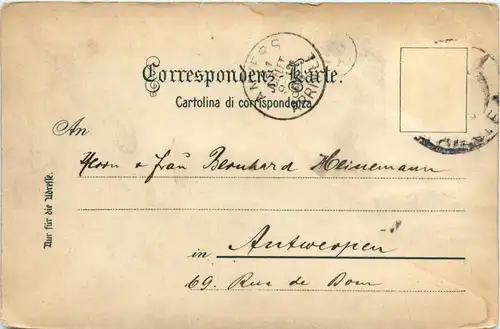 Correspondenz-Karte.
Cartolina di corrispondenza
ANVERS
An
Herrn & Frau Bernhard Heinemann
in Antwerpen
69. Rue de Dom
Nur für die Adresse.